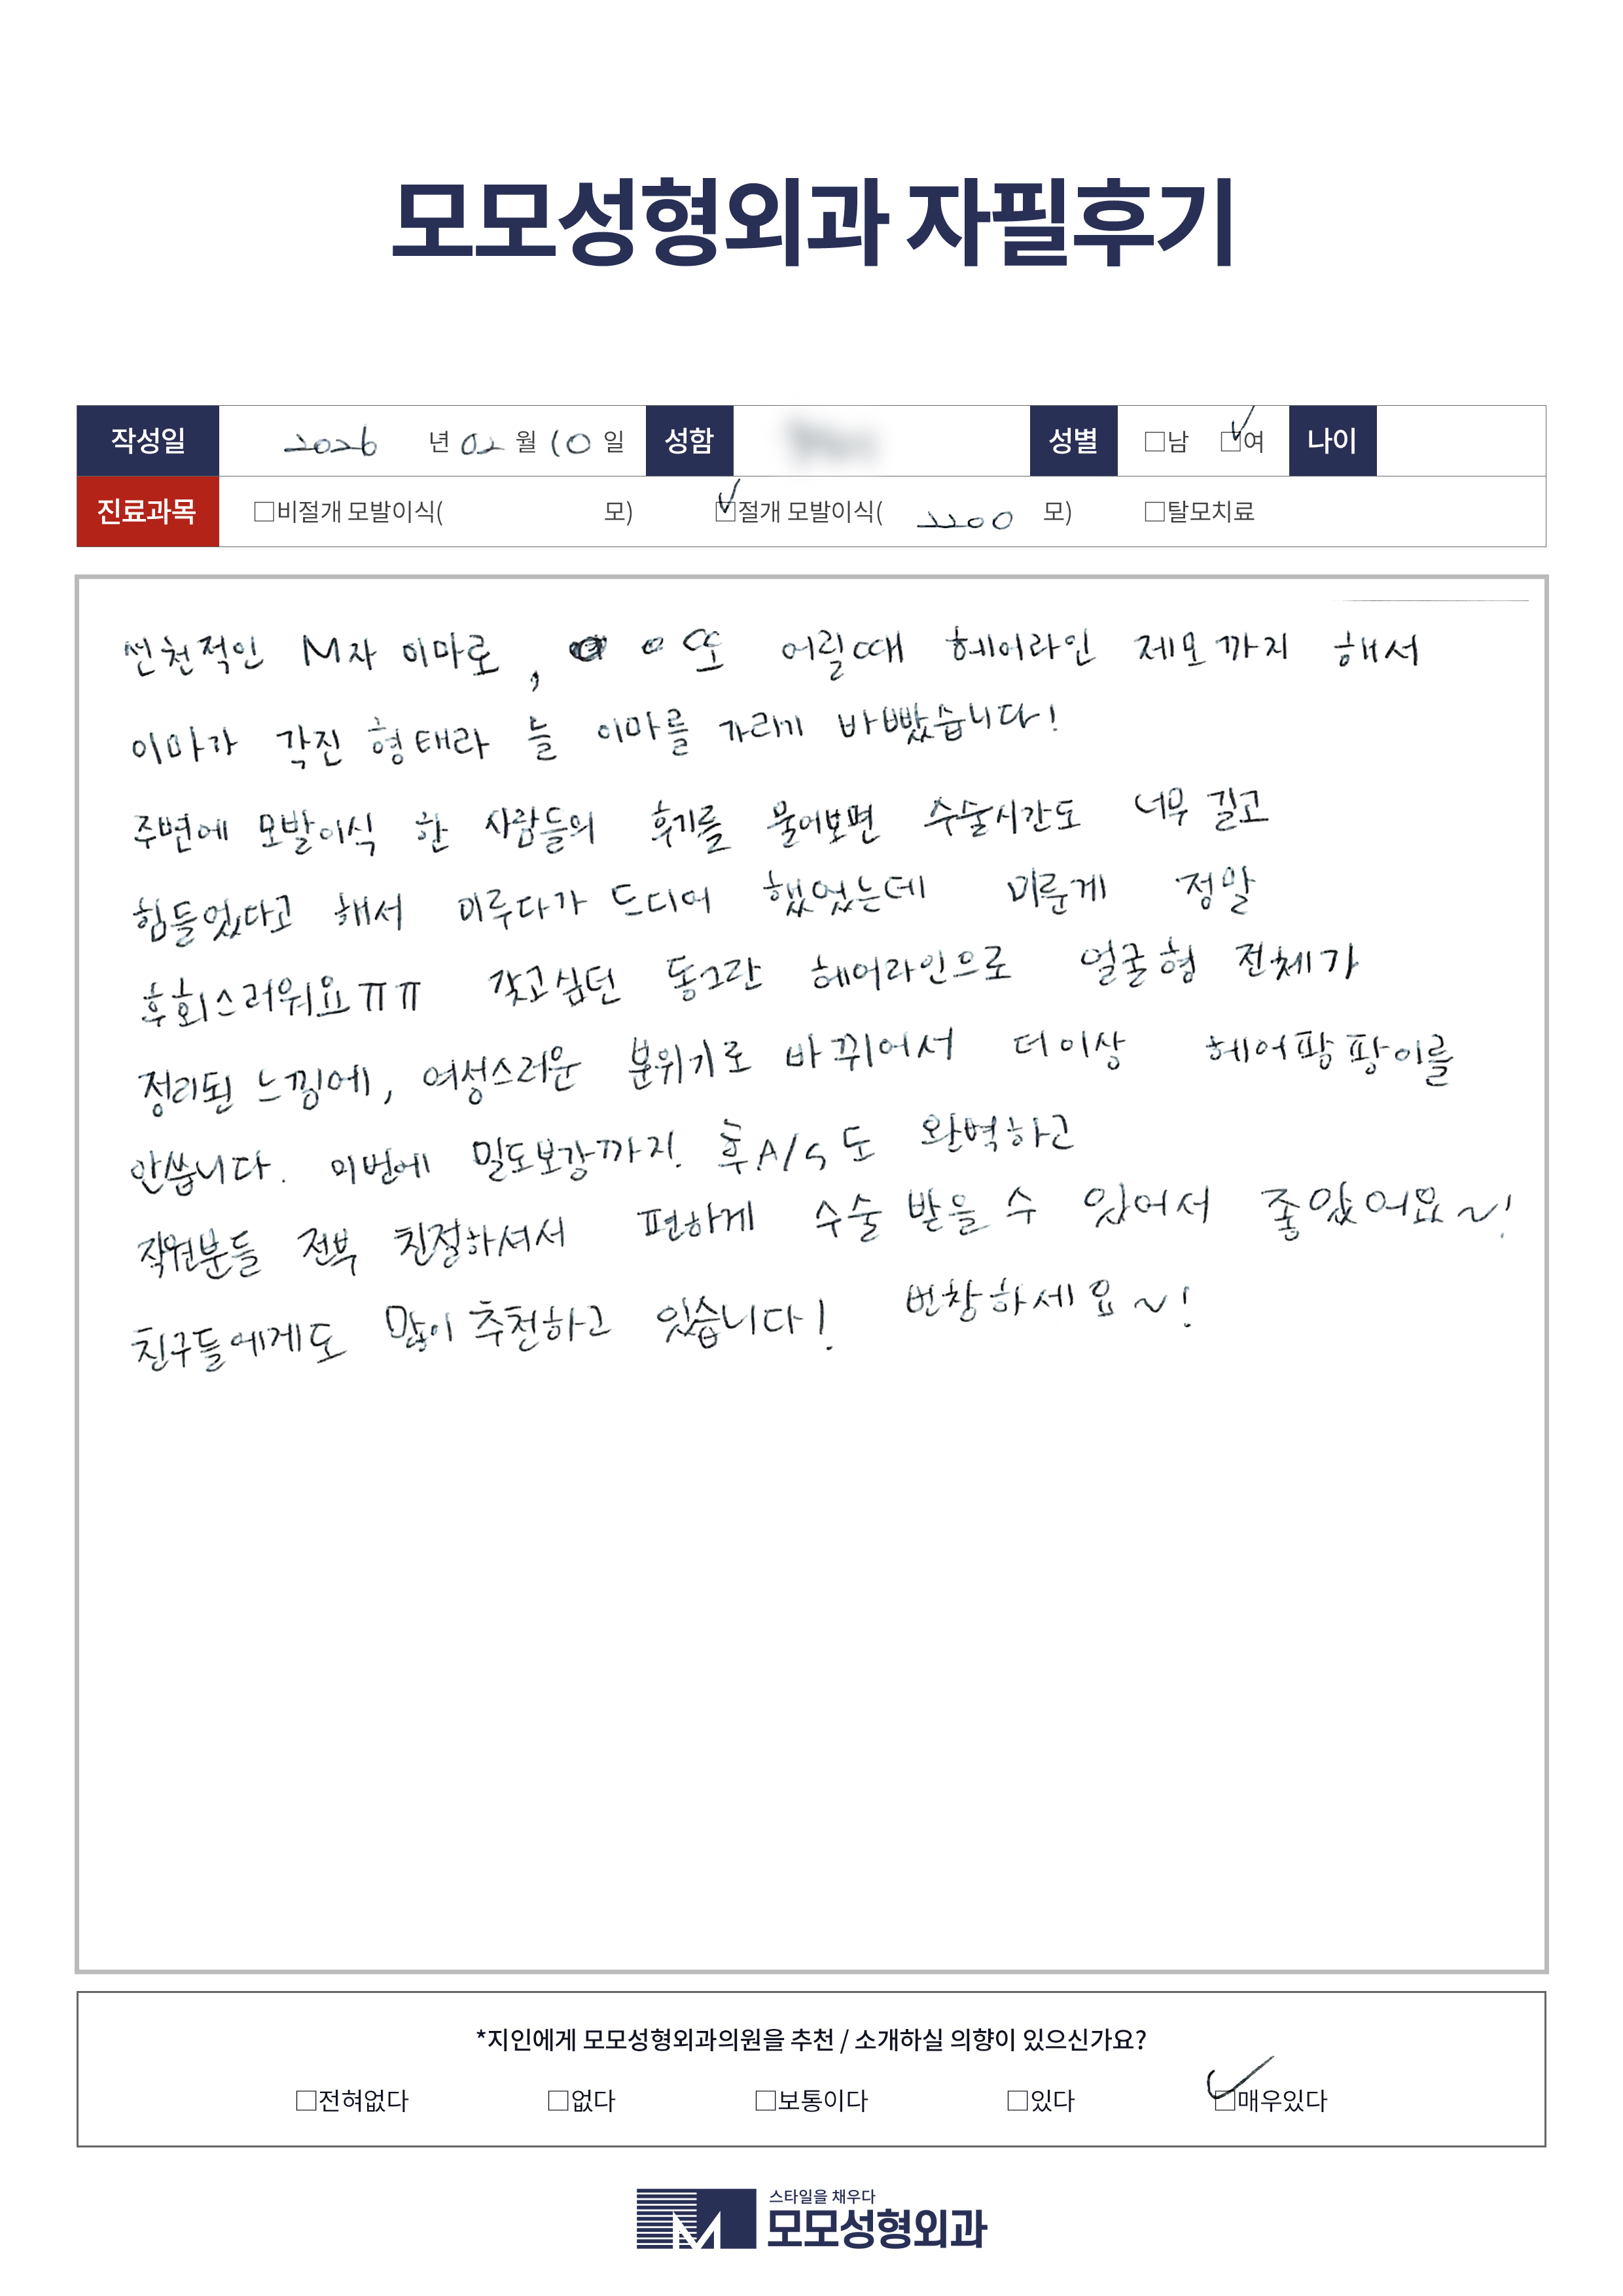 모모성형외과 자필후기
작성일 2026 년 02 월 10 일 성함 성별 □남 ☑여 나이
진료과목 □비절개 모발이식( 모) ☑절개 모발이식( 2200 모) □탈모치료
선천적인 M자 이마로, 또 어릴때 헤어라인 제모까지 해서
이마가 각진 형태라 늘 이마를 가리기 바빴습니다!
주변에 모발이식 한 사람들의 후기를 물어보면 수술시간도 너무 길고
힘들었다고 해서 미루다가 드디어 했었는데 미룬게 정말
후회스러워요ㅠㅠ 갖고싶던 동그란 헤어라인으로 얼굴형 전체가
정리된 느낌에, 여성스러운 분위기로 바뀌어서 더이상 헤어팡팡이를
안씁니다. 이번에 밀도보강까지. 후A/S도 완벽하고
직원분들 전부 친절하셔서 편하게 수술 받을 수 있어서 좋았어요~!
친구들에게도 많이 추천하고 있습니다! 번창하세요~!
*지인에게 모모성형외과의원을 추천 / 소개하실 의향이 있으신가요?
□전혀없다 □없다 □보통이다 □있다 ☑매우있다
스타일을 채우다
모모성형외과